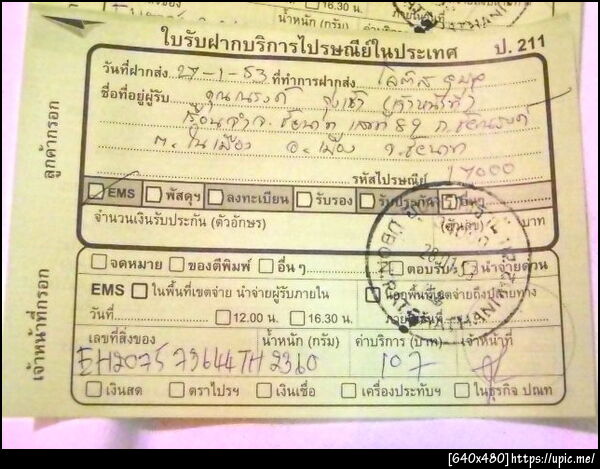 16.30 น.
น้ำหนัก (กรัม)
ใบรับฝากบริการไปรษณีย์ในประเทศ ป. 211
วันที่ฝากส่ง 27-1-53 ที่ทำการฝากส่ง
ชื่อที่อยู่ผู้รับ คุณณรงค์ (เจ้าหน้าที่)
เรือนจำจ.ชัยนาท เลขที่ 89
ต. ในเมือง อ. เมือง จ.ชัยนาท
รหัสไปรษณีย์ 17000
EMS พัสดุฯ ลงทะเบียน รับรอง รับประกัน อื่นๆ
จำนวนเงินรับประกัน (ตัวอักษร) (ตัวเลข) บาท
ลูกค้ากรอก
จดหมาย ของตีพิมพ์ อื่น ๆ ตอบรับ นำจ่ายด่วน
EMS ในพื้นที่เขตจ่าย นำจ่ายผู้รับภายใน นอกพื้นที่เขตจ่ายถึงปลายทาง
วันที่ 12.00 น. 16.30 น. ภายในวันที่
เลขที่สิ่งของ น้ำหนัก (กรัม) ค่าบริการ (บาท) เจ้าหน้าที่
EH207573644TH 2360 107
เงินสด ตราไปรฯ เงินเชื่อ เครื่องประทับฯ ในธุรกิจ ปณท
เจ้าหน้าที่กรอก
[640x480]https://upic.me/